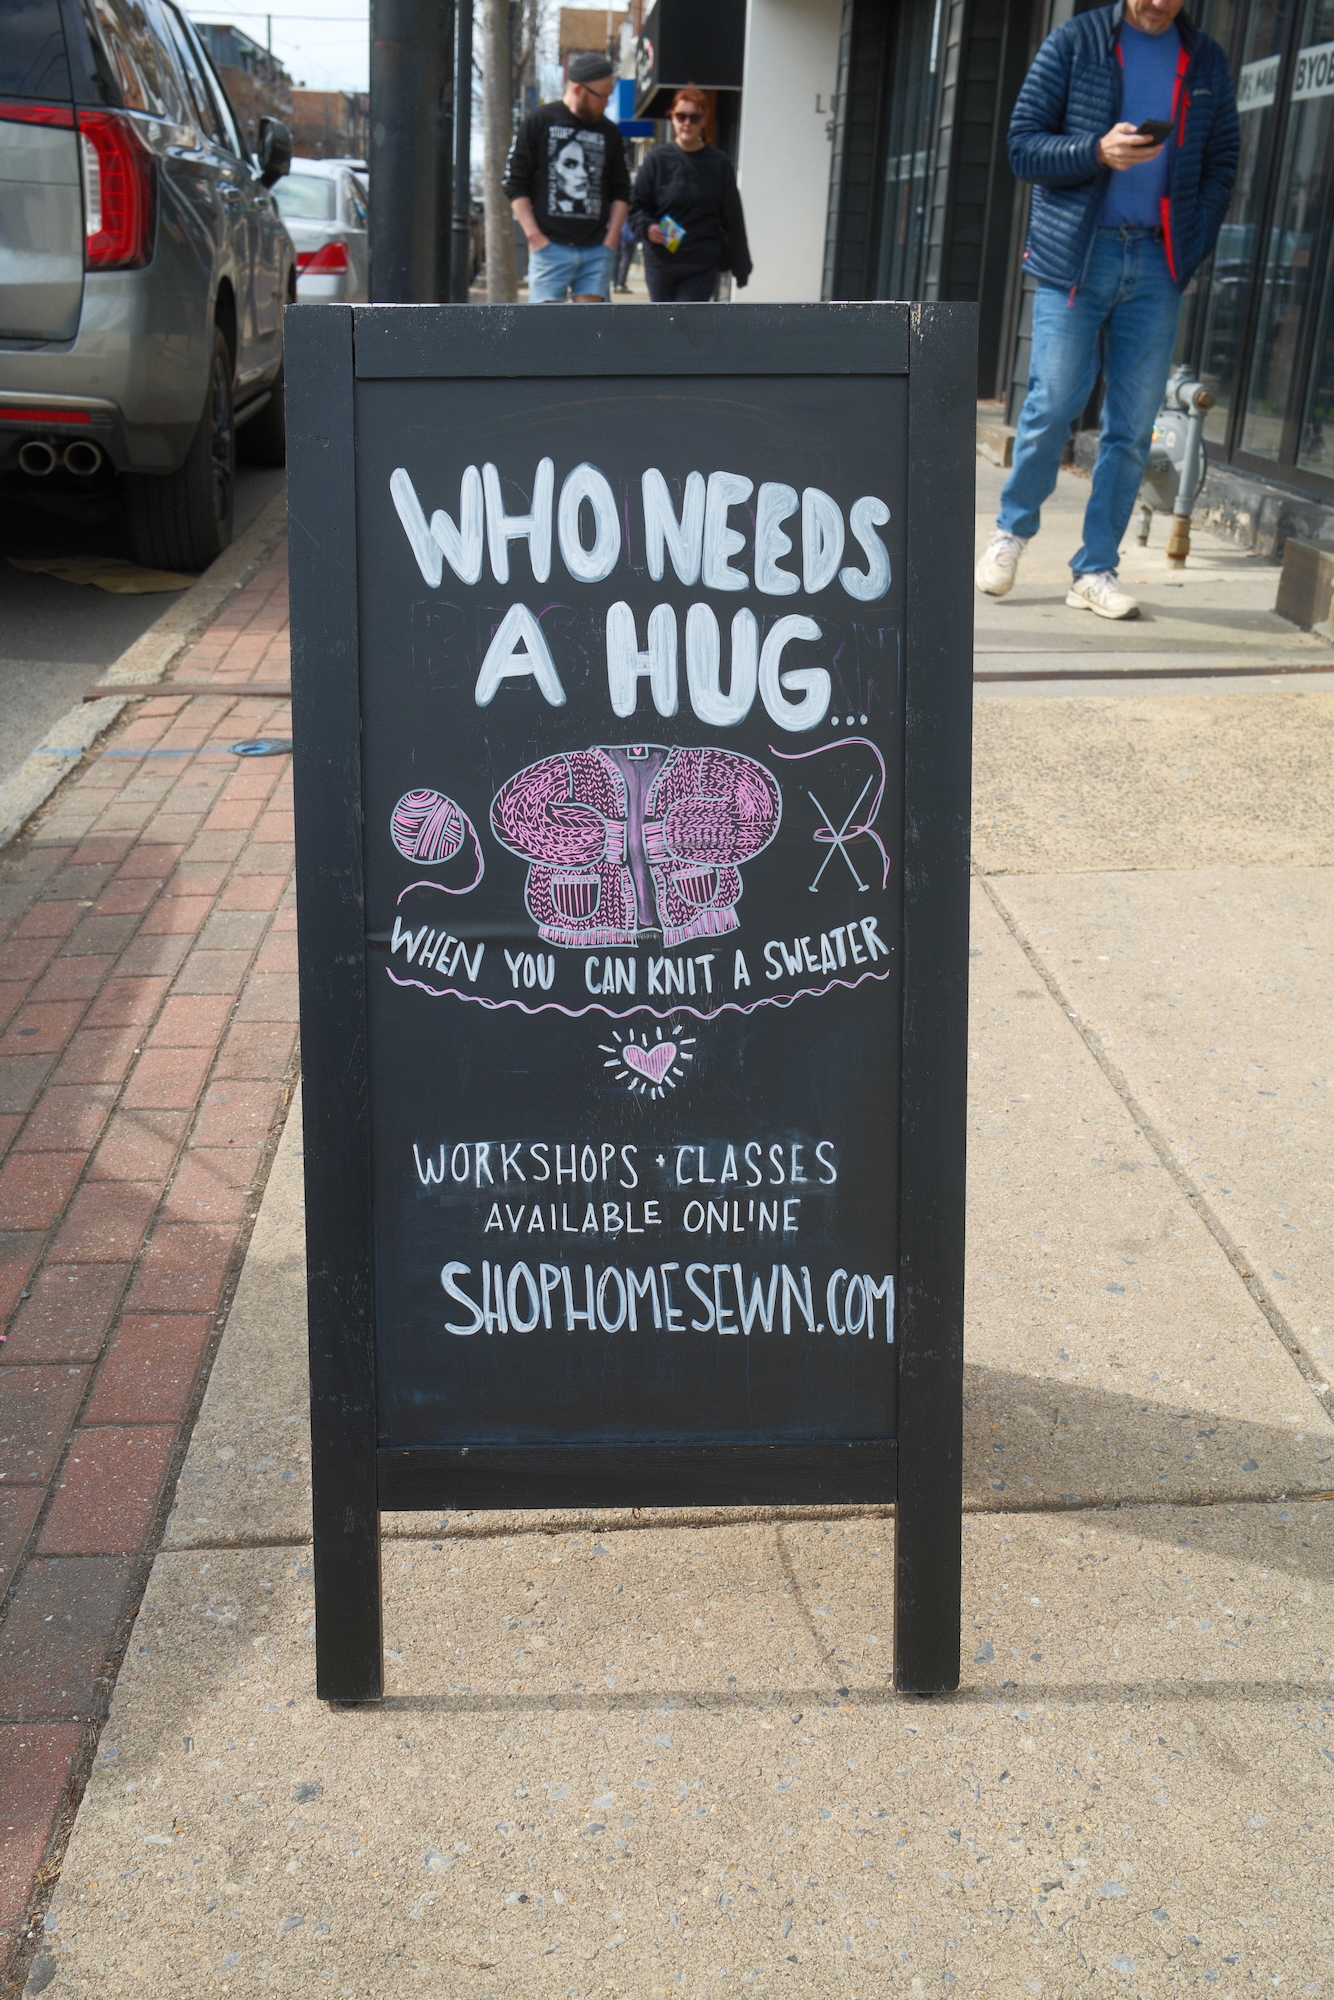 WHO NEEDS
A HUG...
WHEN YOU CAN KNIT A SWEATER.
WORKSHOPS + CLASSES
AVAILABLE ONLINE
SHOPHOMESEWN.COM
BYOB